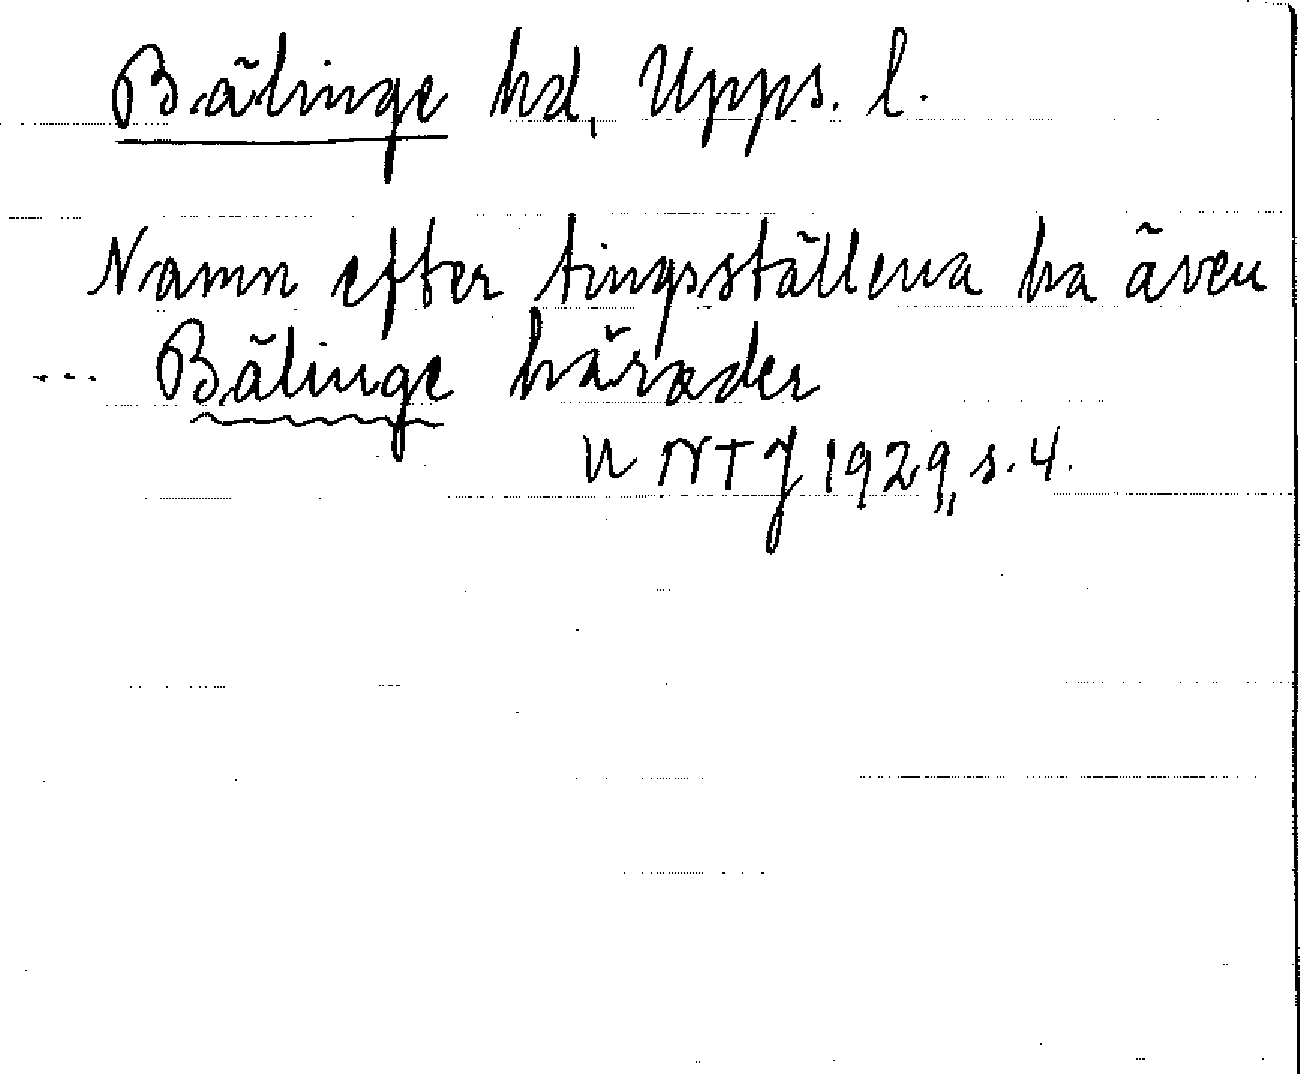 Bälinge hd, Upps. l.
Namn efter tingsställena ha även
--- Bälinge härader
u NTJ 1929, s. 4.